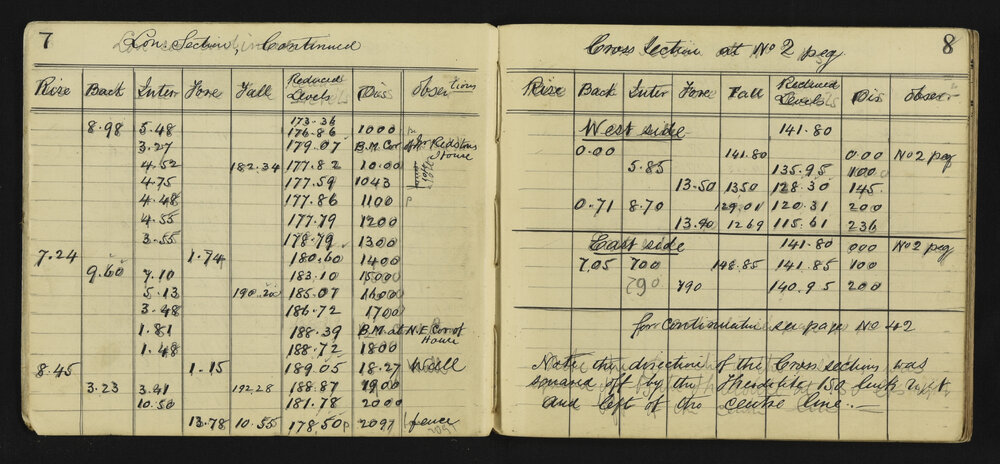 7
Long Section, Continued
Rise Back Inter Fore Fall Reduced Levels Dis Observations
173.36
8.98 5.48 176.86 1000
3.27 179.07 B.M. Cor of Mr Ridstons House
4.52 182.34 177.82 10.00
4.75 177.59 1043
4.48 177.86 1100
4.55 177.79 1200
3.55 178.79 1300
7.24 1.74 180.60 1400
9.60 7.10 183.10 15000
5.13 190.20 185.07 1600
3.48 186.72 1700
1.81 188.39 B.M. at N.E. Cor of House
1.48 188.72 1800
8.45 1.15 189.05 18.27 Wall
3.23 3.41 192.28 188.87 1900
10.50 181.78 2000
13.78 10.55 178.50 2097 fence
8
Cross Section at No 2 peg
Rise Back Inter Fore Fall Reduced Levels Dis Observ
West side 141.80
0.00 141.80 0.00 No 2 peg
5.85 135.95 100
13.50 1350 128.30 145
0.71 8.70 129.01 120.31 200
13.40 1269 115.61 236
East side 141.80 000 No 2 peg
7.05 700 148.85 141.85 100
790 790 140.95 200
for continuation see page No 42
Note the direction of the Cross sections was
squared off by the Theodolite 150 links right
and left of the centre line.